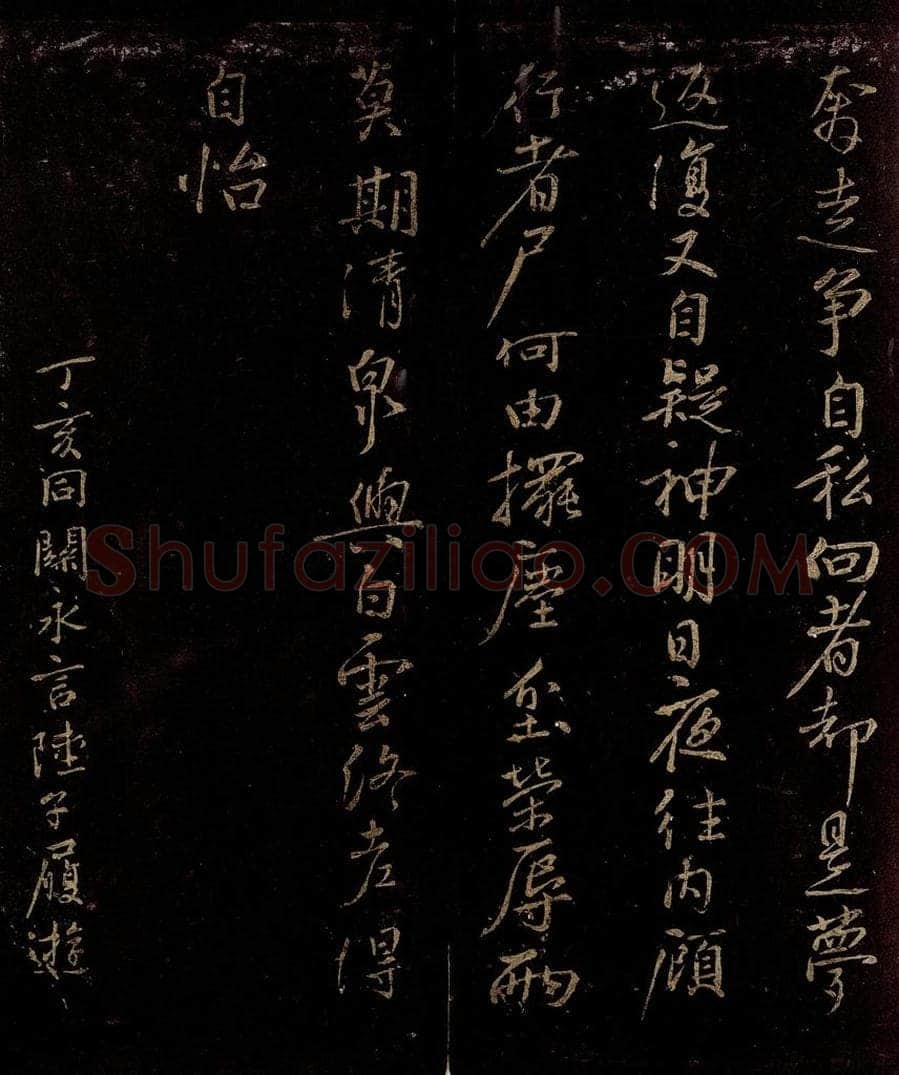 奔走争自私向者却是夢
返復又自疑神明日夜往内顧
行者尸何由擺塵坌榮辱兩
莫期清泉與白雲終老得
自怡
丁亥同闞永言陸子履遊
Shufaziliao.COM